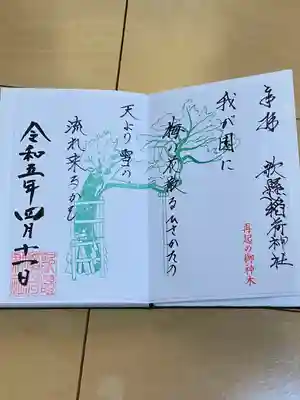 奉拝
歌懸稲荷神社
再起の御神木
我が園に
梅の花散るひさかたの
天より雪の
流れ来るかも
令和五年四月十一日